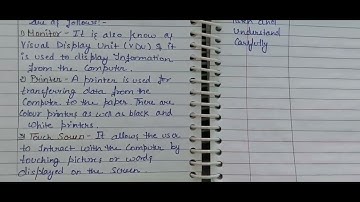 are of follows:-
1) Monitor - It is also know as
Visual Display Unit (VDU) & it
is used to display Information
from the Computer.
2) Printer - A printer is used for
transferring data from the
Computer to the paper. There are
Colour printers as well as black and
white printers.
3) Touch Screen - It allows the user
to Interact with the Computer by
touching pictures or words
displayed on the screen.
and
Understand
Carefully